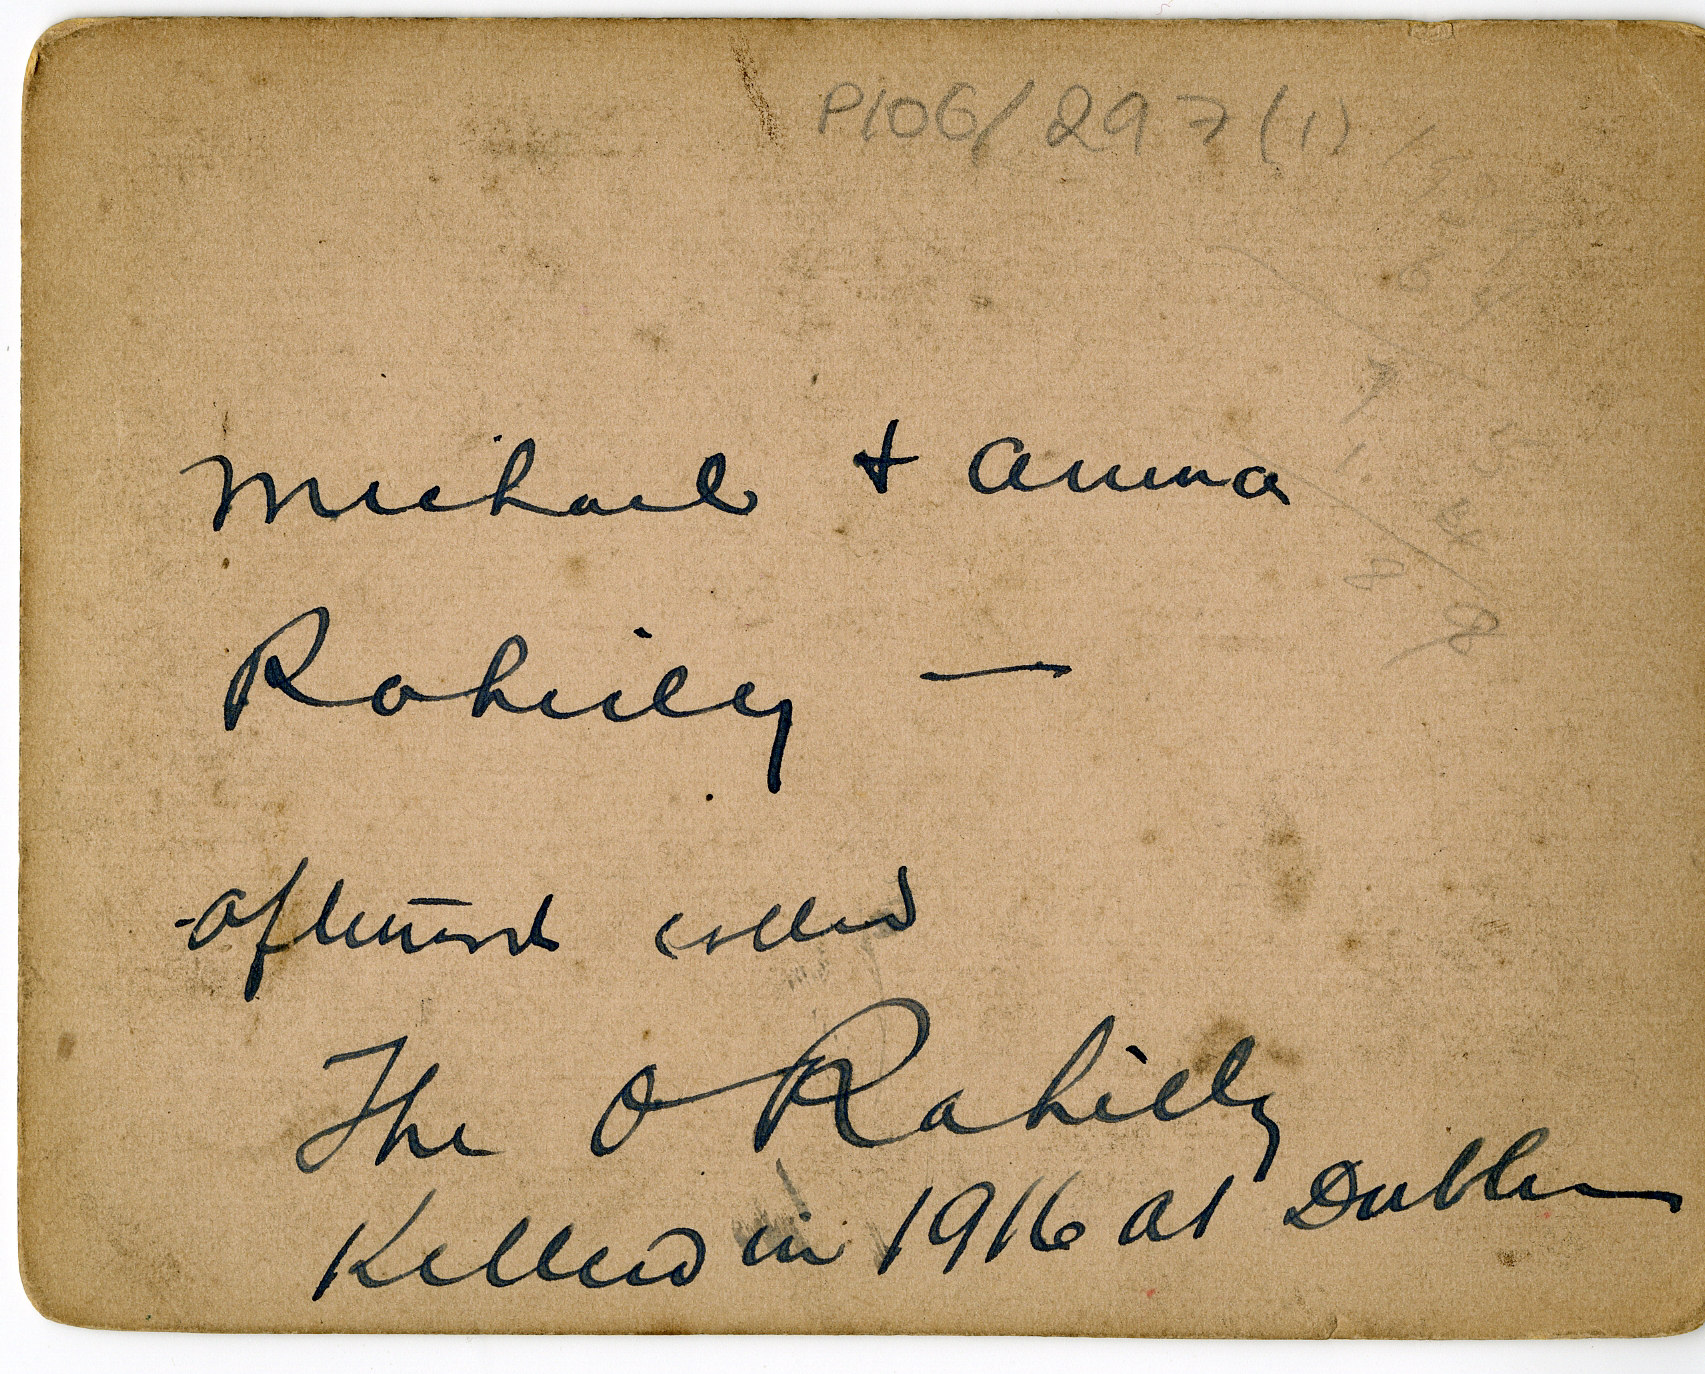 P106/297(1)
Michael + Anna
Rahilly —
- afterward called
The O Rahilly
Killed in 1916 at Dublin